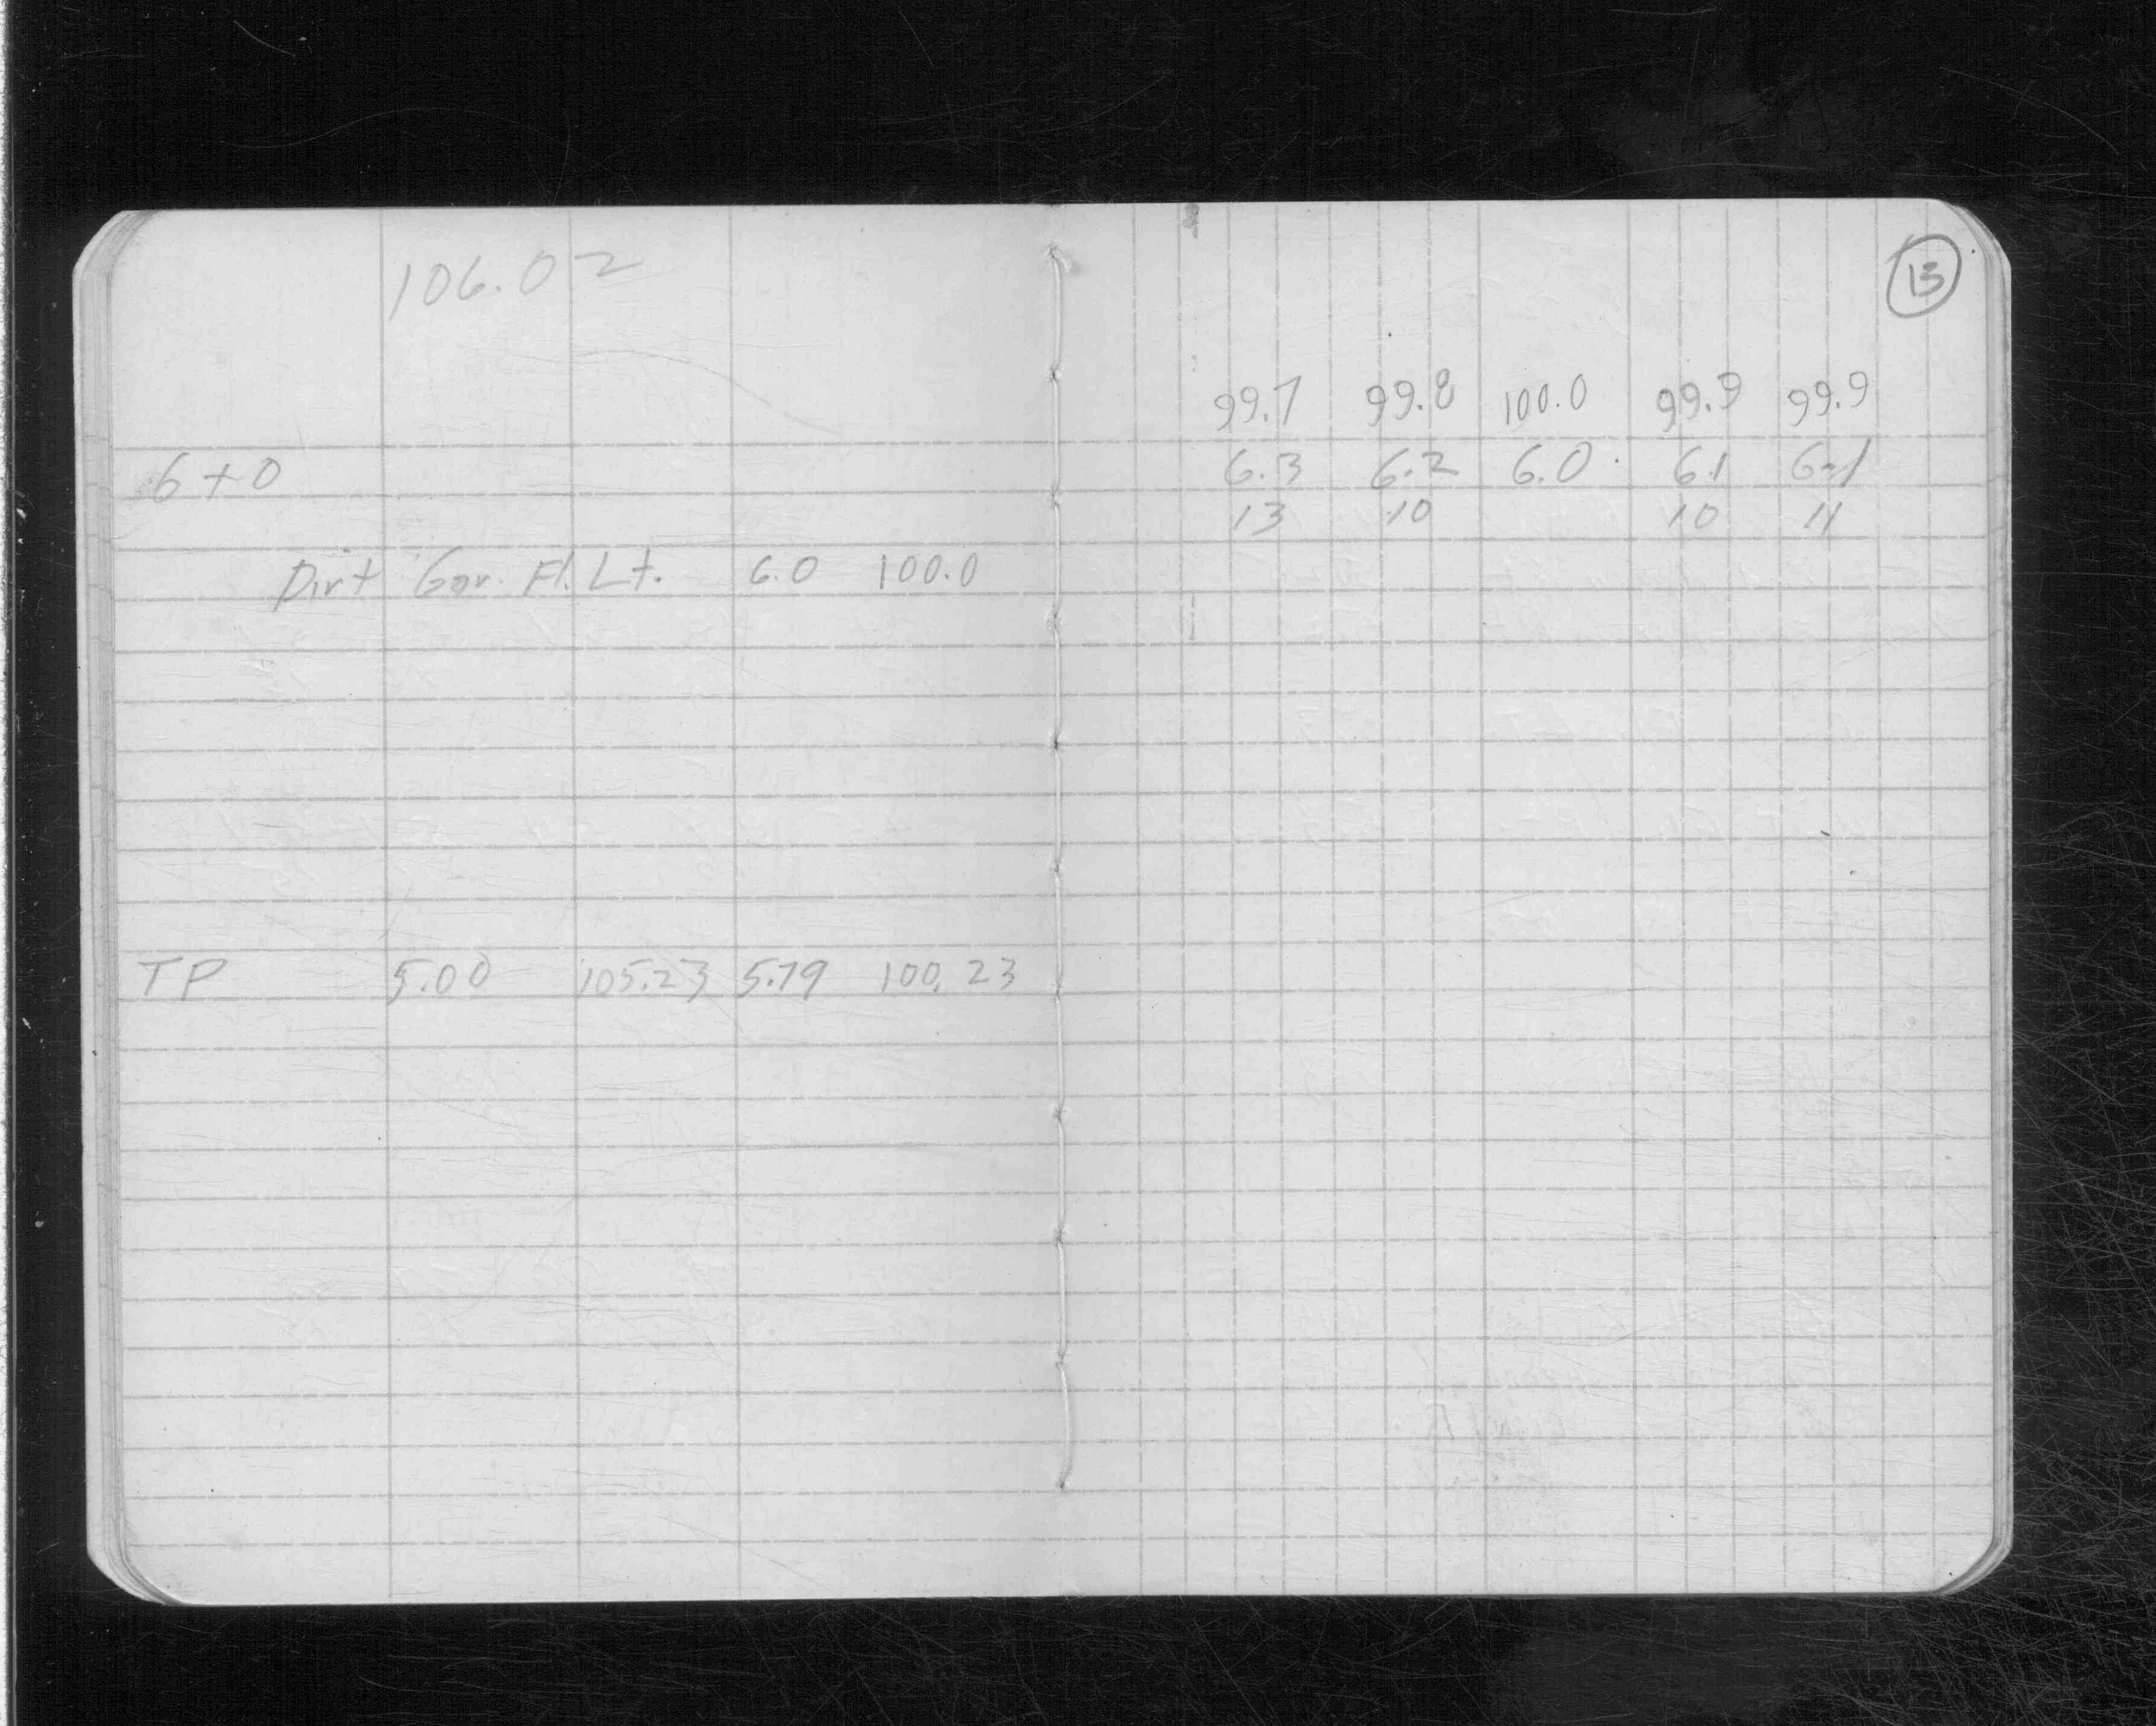 106.02
6+0
Dirt Gar. Fl. Lt. 6.0 100.0
TP 5.00 105.23 5.79 100.23
13
99.7 99.8 100.0 99.9 99.9
6.3 6.2 6.0 6.1 6.1
13 10 10 11